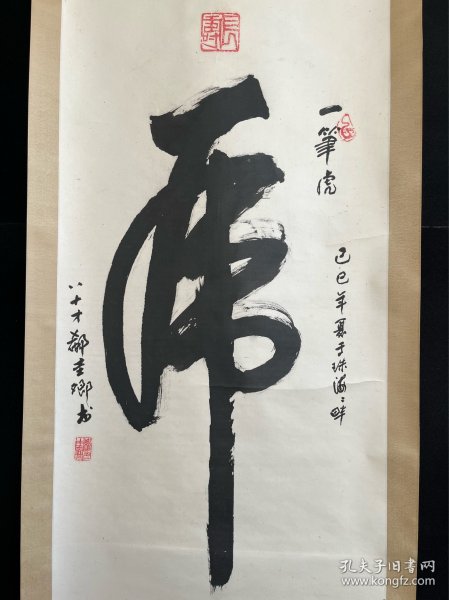 長壽
一筆虎
己巳年夏于珠海之畔
虎
八十才鄒書卿书
孔夫子旧书网
www.kongfz.com